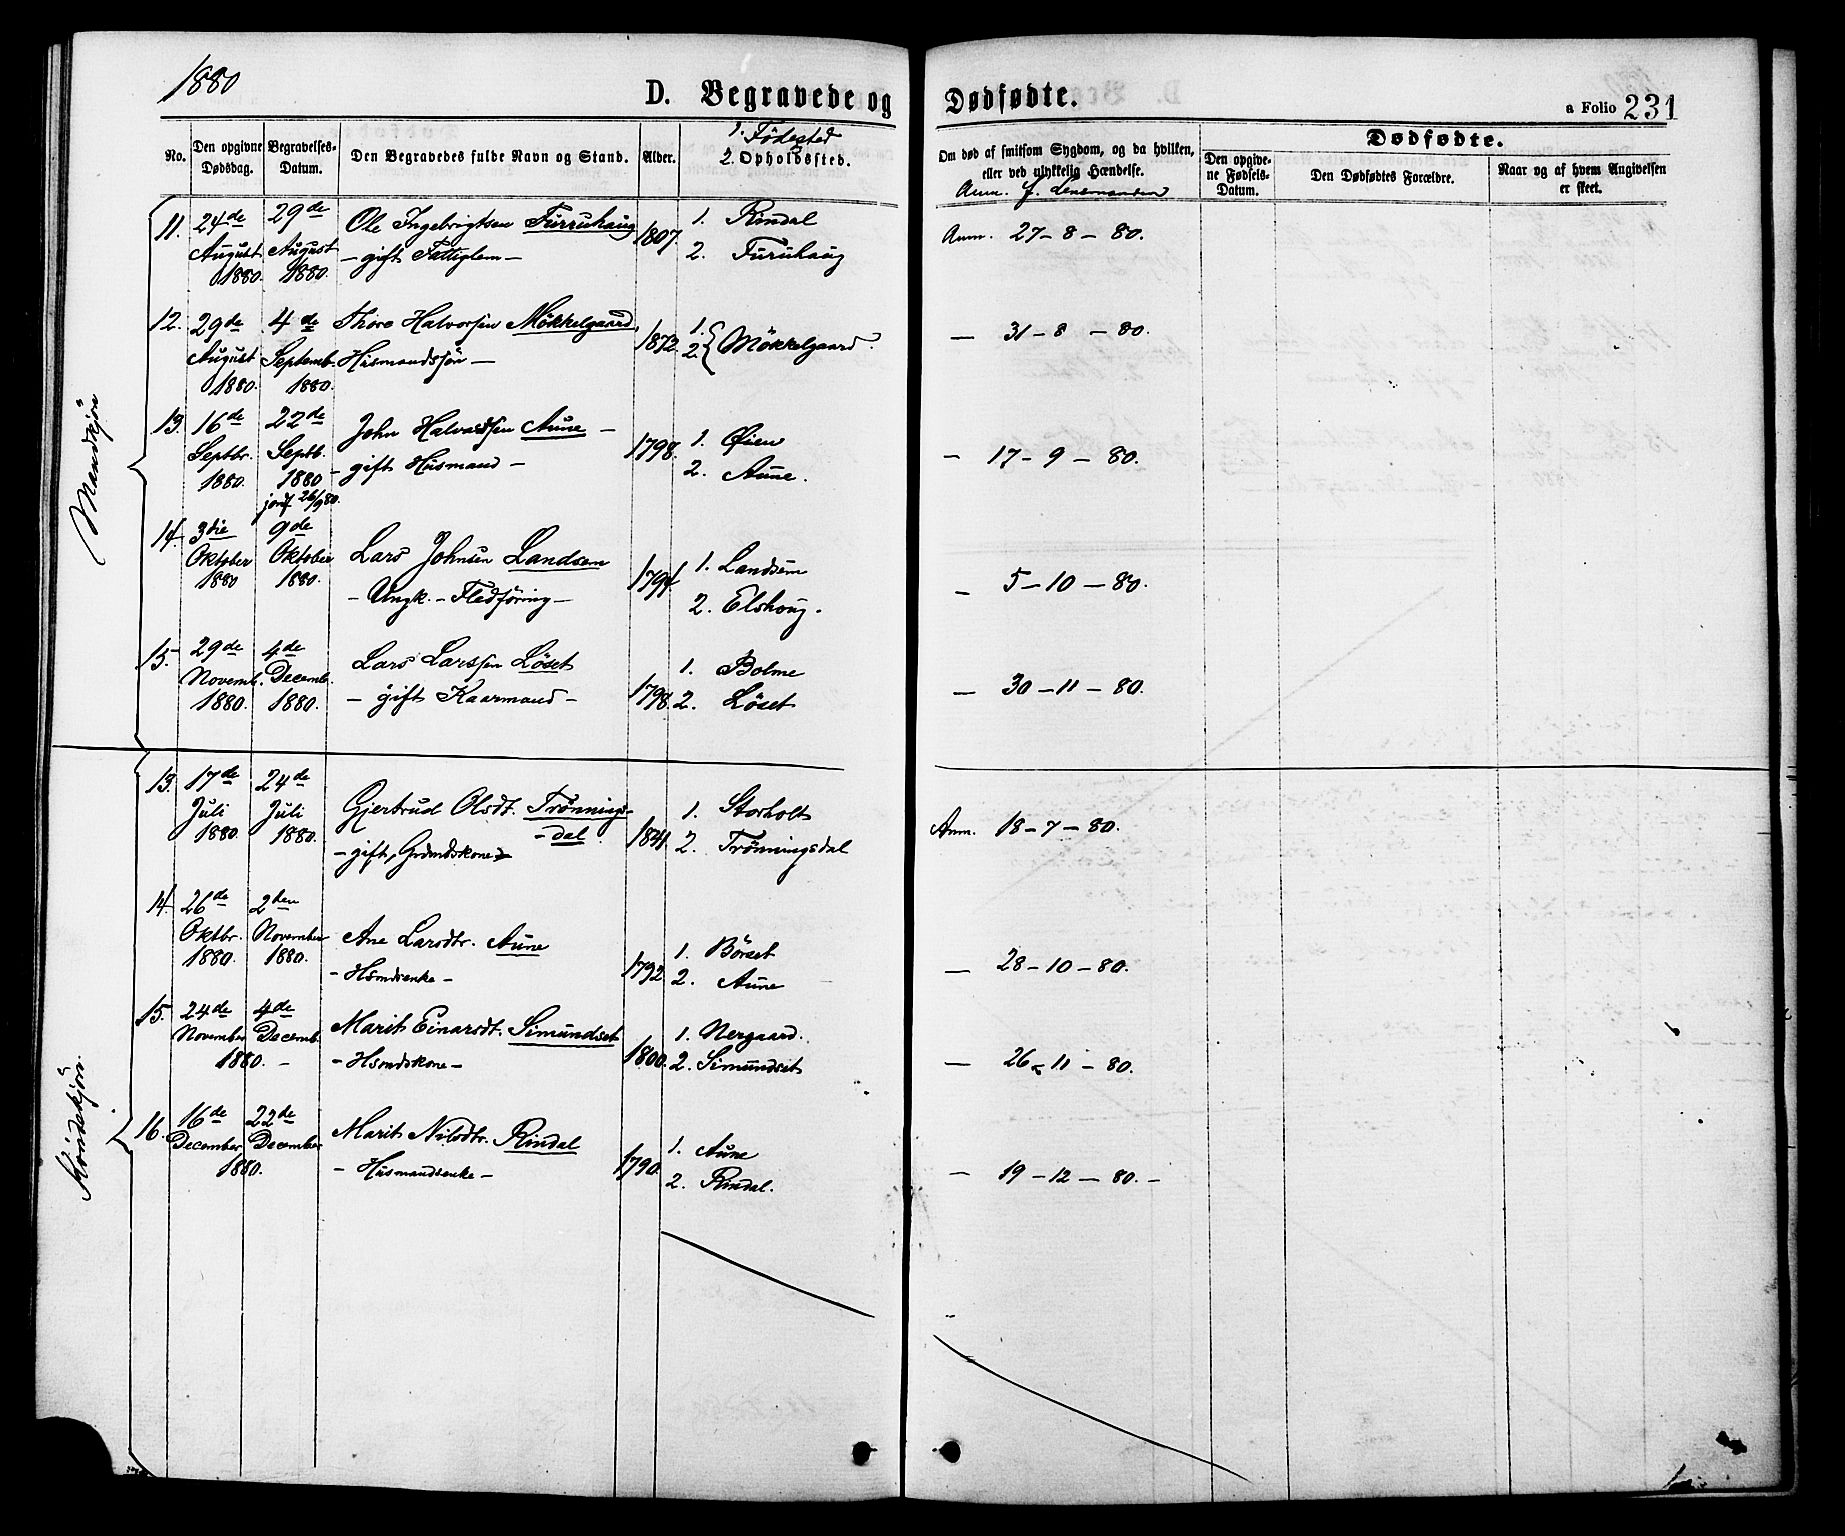 1880
D. Begravede og Dødfødte.
a Folio 231
No.
Den opgivne Dødsdag.
Begravelses-Datum.
Den Begravedes fulde Navn og Stand.
Alder.
1. Födested
2. Opholdssted.
Om død af smitsom Sygdom, og da hvilken,
eller ved ulykkelig Hændelse.
Anm. f. Lensmanden
Dødfødte.
Den opgivne Fødsels-Datum.
Den Dødfødtes Forældre.
Naar og af hvem Angivelsen er skeet.
Mandkjön
11. 24de August 1880. 29de August 1880. Ole Ingebrigtsen Furruhaug 1807. 1. Rindal Anm. 27-8-80.
- gift Fattiglem - 2. Furuhaug
12. 29de August 1880. 4de Septemb. 1880. Thore Halvorsen Mökkelgaard, 1872. 1. 2. { Mökkelgaard. — 31-8-80.
Husmandssön —
13. 16de Septbr. 1880. 22de Septb. 1880 - John Halvardsen Aune - 1798. 1. Øien — 17-9-80.
jordf 26/9 80.
gift Husmand - 2. Aune.
14. 3die Oktober 1880 9de Oktober 1880. Lars Johnsen Landsem 1794. 1. Landsem — 5-10-80.
- Ungk. - Fledföring - 2. Elshoug.
15. 29de Novemb. 1880. 4de Decemb. 1880. Lars Larssen Löset 1798. 1. Bolme — 30-11-80.
- gift Kaarmand - 2. Löset
Kvindekjön.
13. 17de Juli 1880 24de Juli 1880. Gjertrud Olsdt. Trönnings-
-dal 1841. 1. Storholt Anm. 18-7-80.
- gift, Grmdskone 2. Trönningsdal
14. 26de Oktbr. 1880. 2den November 1880. Ane Larsdtr. Aune 1792. 1. Börset — 28-10-80.
- Hsmdsenke - 2. Aune
15. 24de November 4de Decemb. 1880. - Marit Einarsdt. Simundset 1800. 1. Nergaard. — 26-11-80.
- Hsmdskone - 2. Simundset
16. 16de December 22de December 1880. Marit Nilsdtr. Rindal 1790. 1. Aune — 19-12-80.-
- Husmandsenke - 2. Rindal.